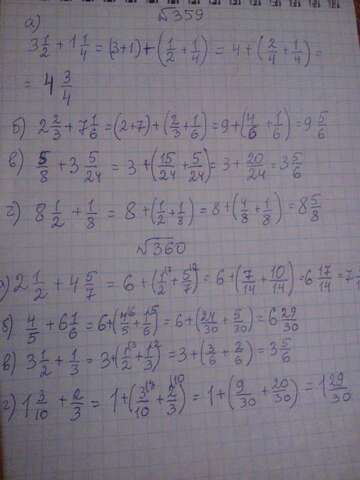 №359
а)
3 1/2 + 1 1/4 = (3+1) + (1/2 + 1/4) = 4 + (2/4 + 1/4) =
= 4 3/4
б) 2 2/3 + 7 1/6 = (2+7) + (2/3 + 1/6) = 9 + (4/6 + 1/6) = 9 5/6
в) 5/8 + 3 5/24 = 3 + (15/24 + 5/24) = 3 + 20/24 = 3 5/6
г) 8 1/2 + 1/8 = 8 + (1/2 + 1/8) = 8 + (4/8 + 1/8) = 8 5/8
№360
а) 2 1/2 + 4 5/7 = 6 + (1/2 + 5/7) = 6 + (7/14 + 10/14) = 6 17/14 = 7
б) 4/5 + 6 1/6 = 6 + (4/5 + 1/6) = 6 + (24/30 + 5/30) = 6 29/30
в) 3 1/2 + 1/3 = 3 + (1/2 + 1/3) = 3 + (3/6 + 2/6) = 3 5/6
г) 1 3/10 + 2/3 = 1 + (3/10 + 2/3) = 1 + (9/30 + 20/30) = 1 29/30